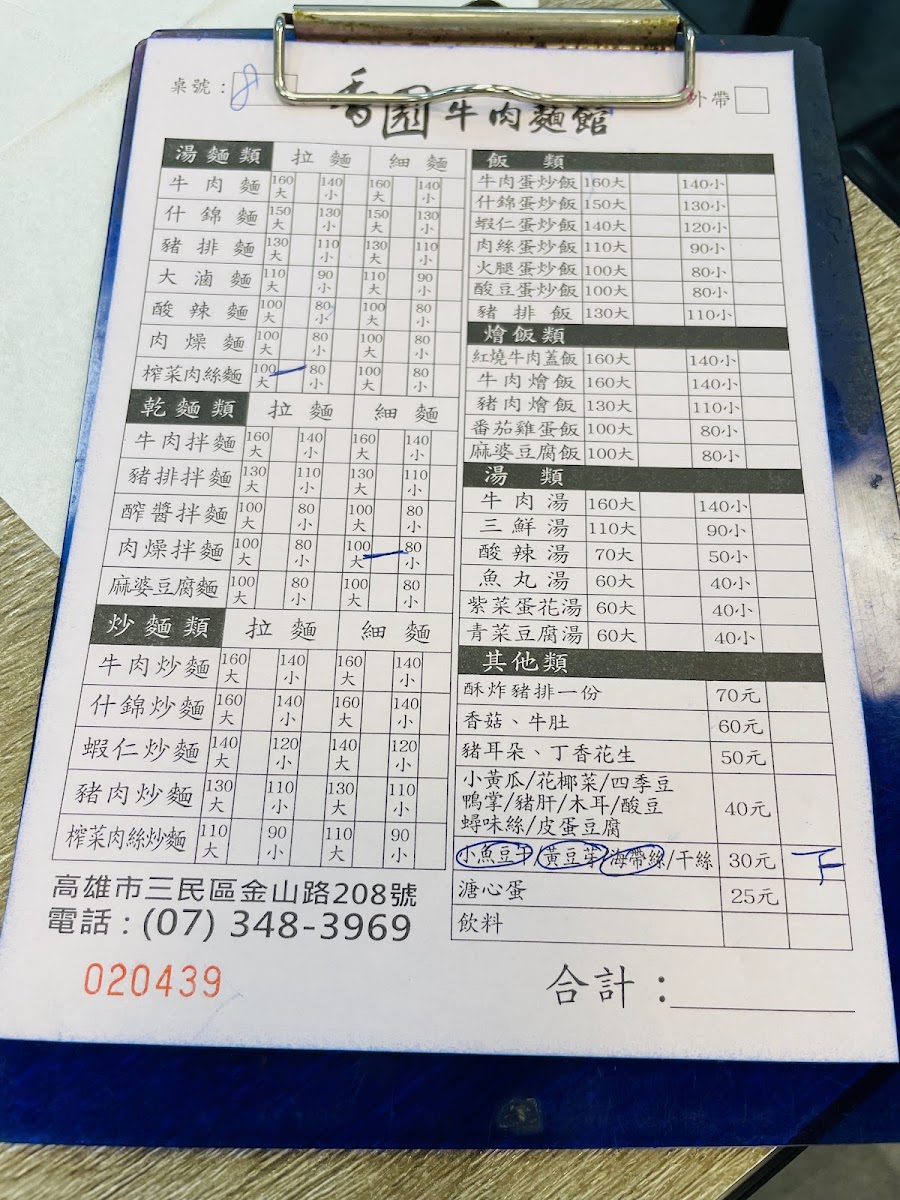 桌號：8
外帶
香園牛肉麵館
湯麵類 拉麵 細麵
牛肉麵 160大 140小 160大 140小
什錦麵 150大 130小 150大 130小
豬排麵 130大 110小 130大 110小
大滷麵 110大 90小 110大 90小
酸辣麵 100大 80小 100大 80小
肉燥麵 100大 80小 100大 80小
榨菜肉絲麵 100大 一 80小 100大 80小
乾麵類 拉麵 細麵
牛肉拌麵 160大 140小 160大 140小
豬排拌麵 130大 110小 130大 110小
醡醬拌麵 100大 80小 100大 80小
肉燥拌麵 100大 80小 100大 一 80小
麻婆豆腐麵 100大 80小 100大 80小
炒麵類 拉麵 細麵
牛肉炒麵 160大 140小 160大 140小
什錦炒麵 160大 140小 160大 140小
蝦仁炒麵 140大 120小 140大 120小
豬肉炒麵 130大 110小 130大 110小
榨菜肉絲炒麵 110大 90小 110大 90小
高雄市三民區金山路208號
電話：(07) 348-3969
020439
飯類
牛肉蛋炒飯 160大 140小
什錦蛋炒飯 150大 130小
蝦仁蛋炒飯 140大 120小
肉絲蛋炒飯 110大 90小
火腿蛋炒飯 100大 80小
酸豆蛋炒飯 100大 80小
豬排飯 130大 110小
燴飯類
紅燒牛肉蓋飯 160大 140小
牛肉燴飯 160大 140小
豬肉燴飯 130大 110小
番茄雞蛋飯 100大 80小
麻婆豆腐飯 100大 80小
湯類
牛肉湯 160大 140小
三鮮湯 110大 90小
酸辣湯 70大 50小
魚丸湯 60大 40小
紫菜蛋花湯 60大 40小
青菜豆腐湯 60大 40小
其他類
酥炸豬排一份 70元
香菇、牛肚 60元
豬耳朵、丁香花生 50元
小黃瓜/花椰菜/四季豆
鴨掌/豬肝/木耳/酸豆 40元
蟳味絲/皮蛋豆腐
小魚豆干/黃豆芽/海帶絲/干絲 30元 下
溏心蛋 25元
飲料
合計：